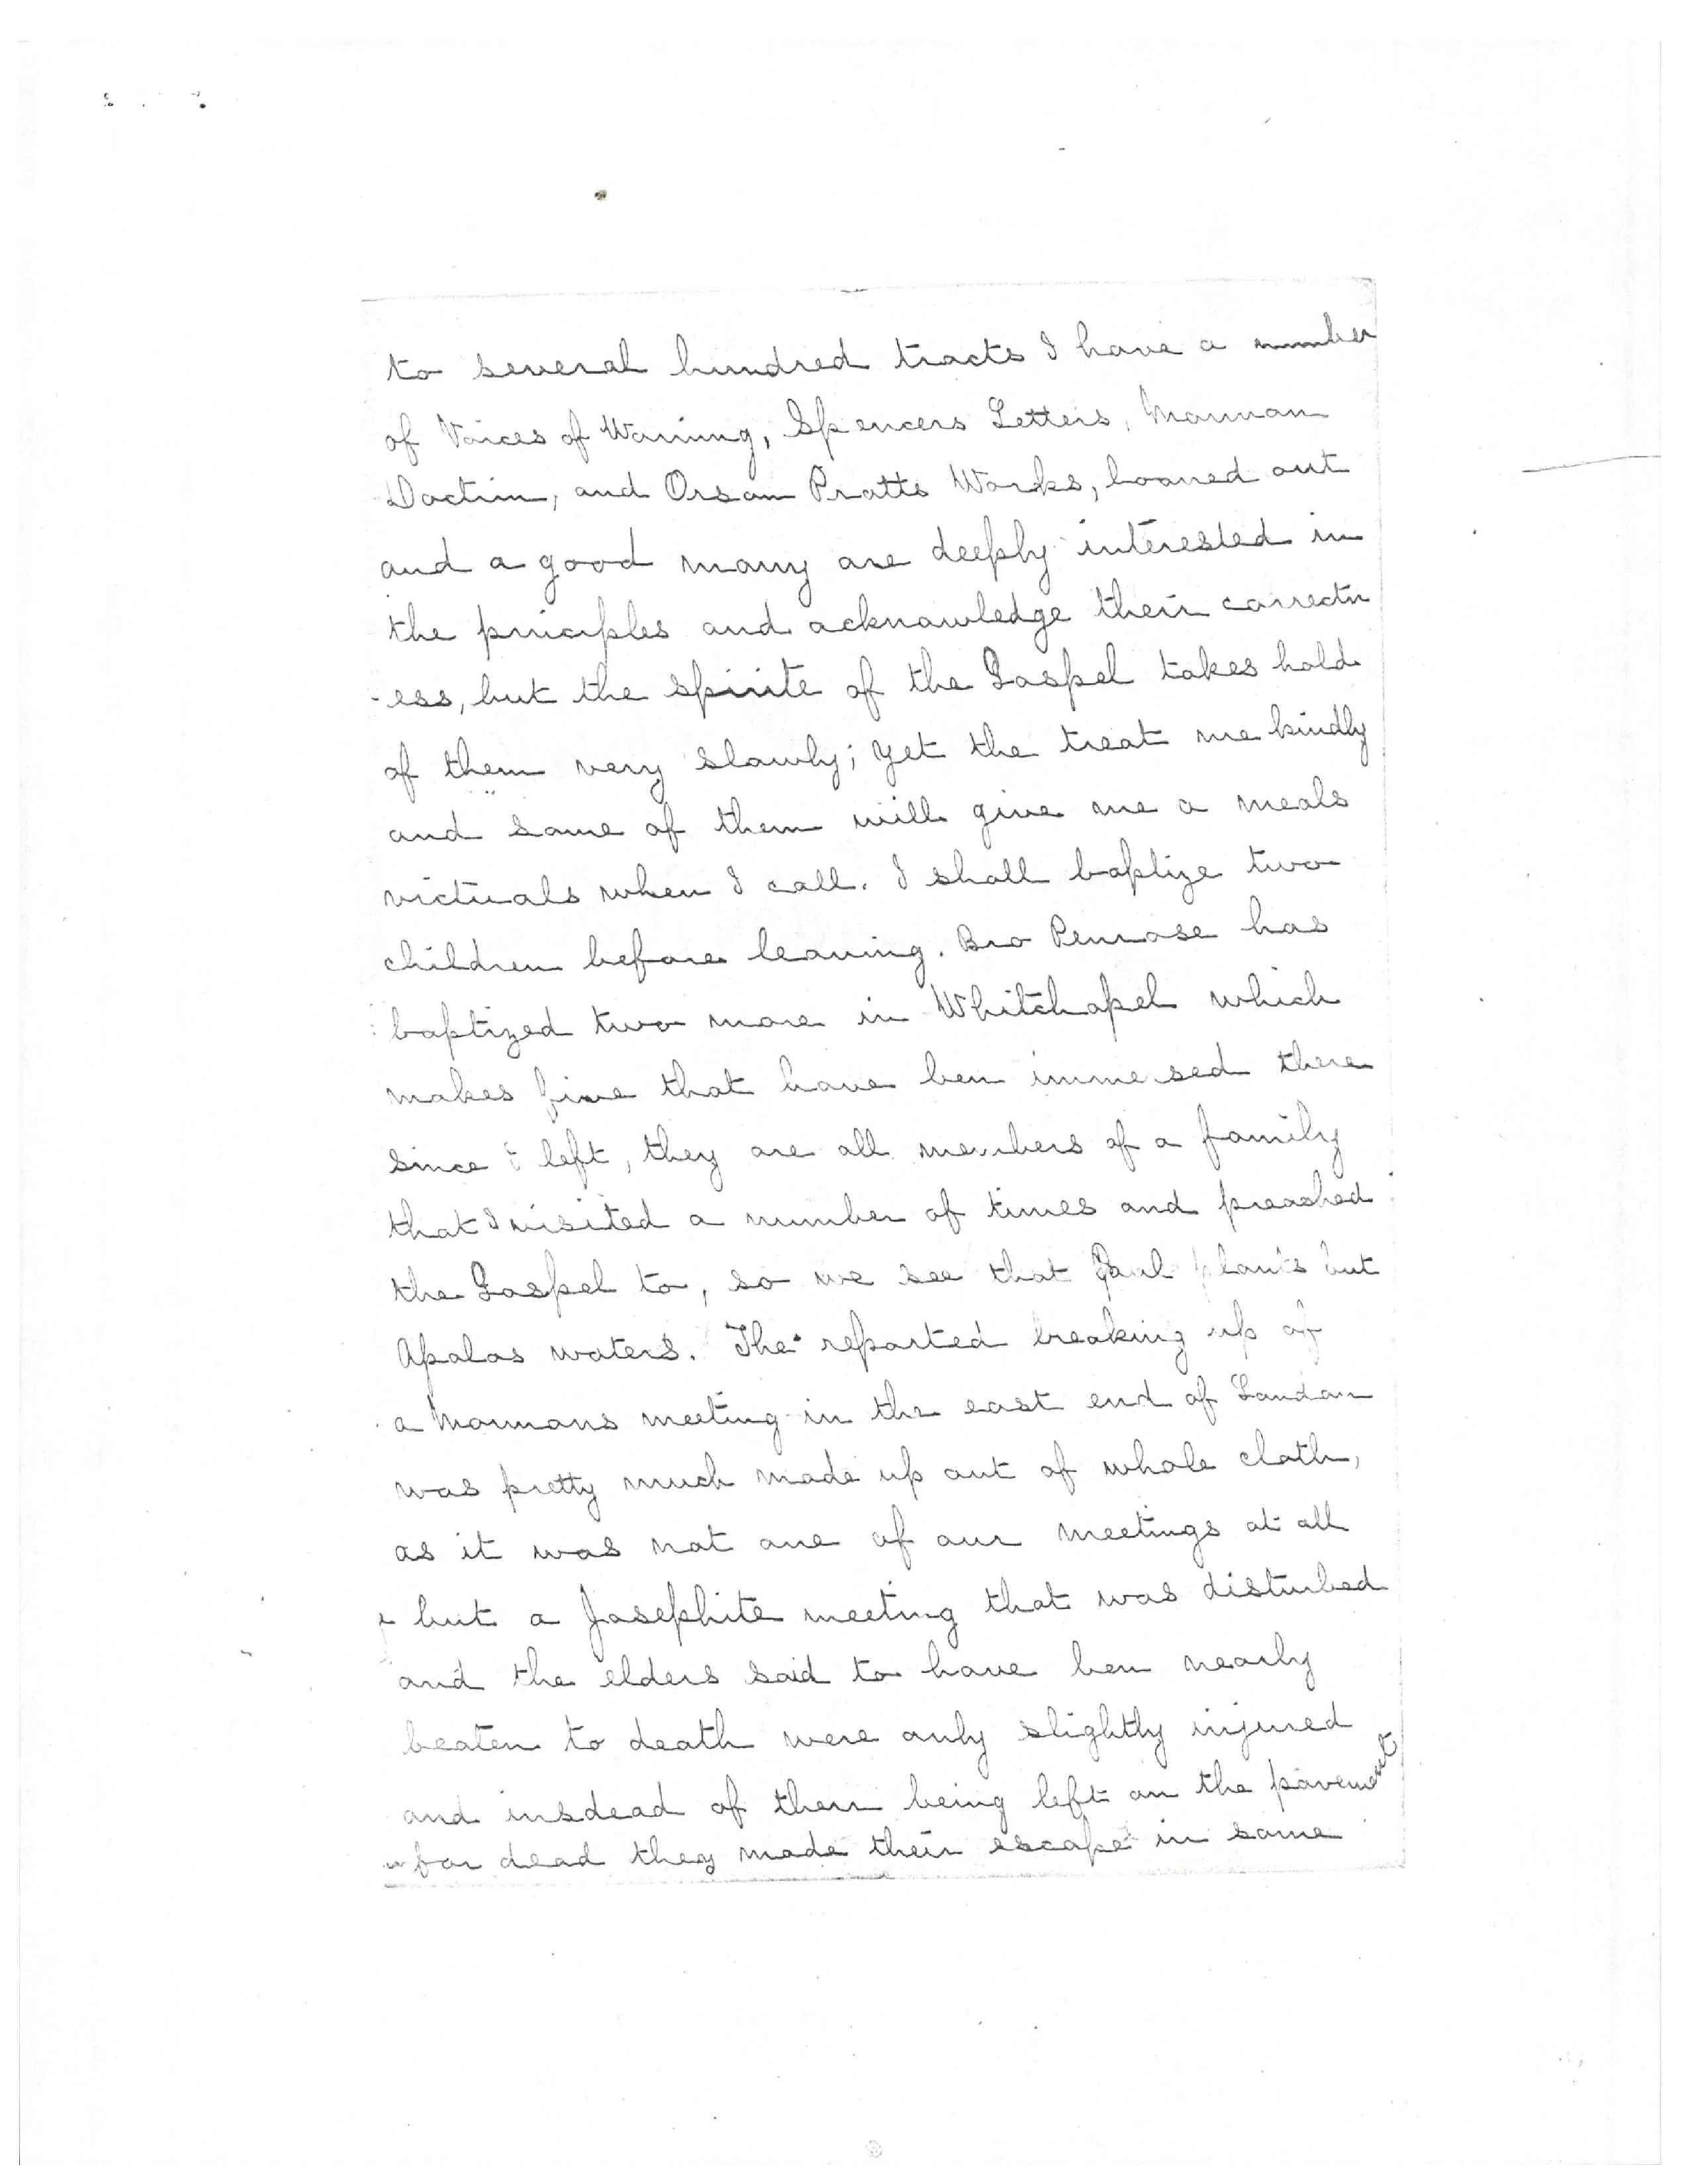 to several hundred tracts I have a number
of Voices of Warning, Spencers Letters, Mormon
Doctrin, and Orson Pratts Works, loaned out
and a good many are deeply interested in
the priciples and acknowledge their correctn
-ess, but the spirite of the Gospel takes hold
of them very slowly; yet the treat me kindly
and some of them will give me a meals
victuals when I call. I shall baptize two
children before leaving. Bro Penrose has
baptized two more in Whitchapel which
makes five that have ben immersed there
since I left, they are all members of a family
that I visited a number of times and preached
the Gospel to, so we see that Paul plants but
Apolos waters. The reported breaking up of
a Mormons meeting in the east end of London
was pretty much made up out of whole cloth,
as it was not one of our meetings at all
but a Josephite meeting that was disturbed
and the elders said to have ben nearly
beaten to death were only slightly injured
and insdead of them being left on the pavement
for dead they made their escape in some